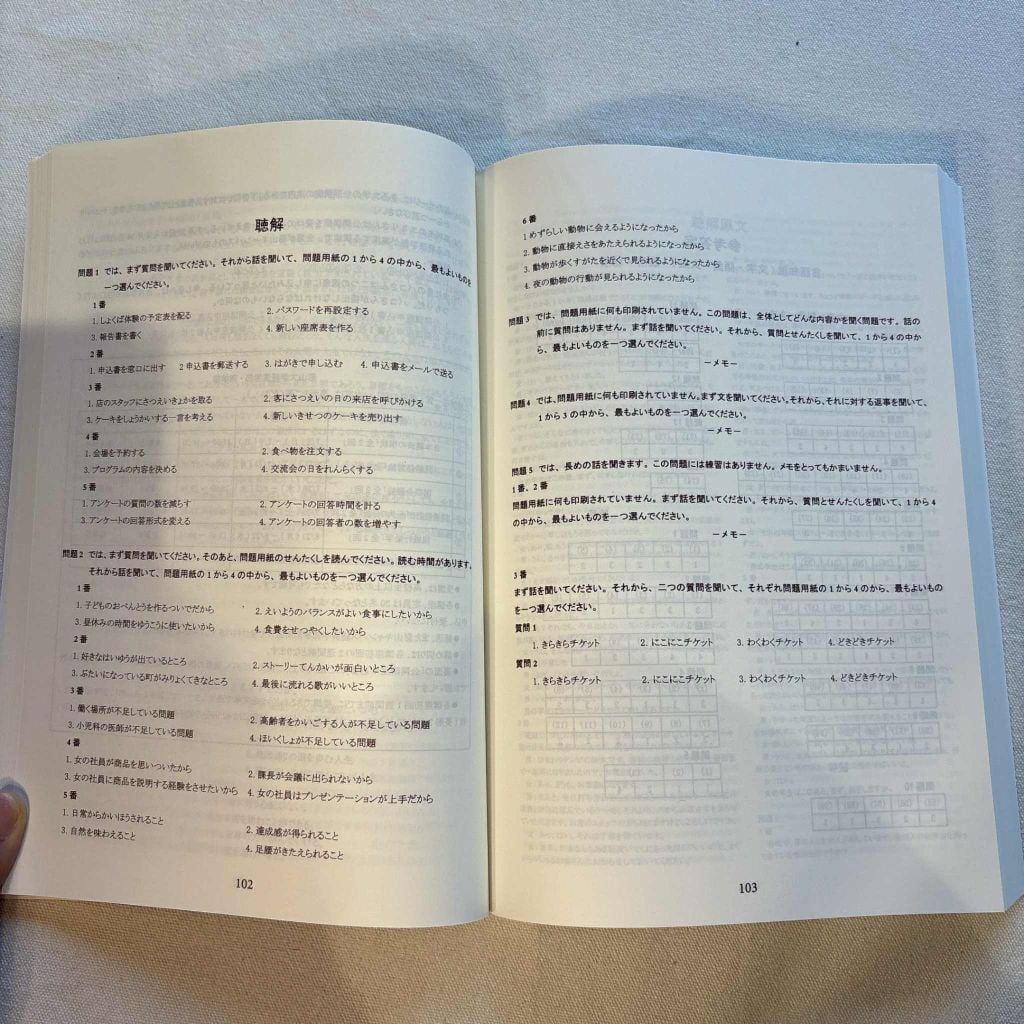 聴解
問題 1 では、まず質問を聞いてください。それから話を聞いて、問題用紙の 1 から 4 の中から、最もよいものを
一つ選んでください。
1 番
1. しょくば体験の予定表を配る 2. パスワードを再設定する
3. 報告書を書く 4. 新しい座席表を作る
2 番
1. 申込書を窓口に出す 2 申込書を郵送する 3. はがきで申し込む 4. 申込書をメールで送る
3 番
1. 店のスタッフにさつえいきょかを取る 2. 客にさつえいの日の来店を呼びかける
3. ケーキをしょうかいする一言を考える 4. 新しいきせつのケーキを売り出す
4 番
1. 会場を予約する 2. 食べ物を注文する
3. プログラムの内容を決める 4. 交流会の日をれんらくする
5 番
1. アンケートの質問の数を減らす 2. アンケートの回答時間を計る
3. アンケートの回答形式を変える 4. アンケートの回答者の数を増やす
問題 2 では、まず質問を聞いてください。そのあと、問題用紙のせんたくしを読んでください。読む時間があります。
それから話を聞いて、問題用紙の 1 から 4 の中から、最もよいものを一つ選んでください。
1 番
1. 子どものおべんとうを作るついでだから 2. えいようのバランスがよい食事にしたいから
3. 昼休みの時間をゆうこうに使いたいから 4. 食費をせつやくしたいから
2 番
1. 好きなはいゆうが出ているところ 2. ストーリーてんかいが面白いところ
3. ぶたいになっている町がみりょくてきなところ 4. 最後に流れる歌がいいところ
3 番
1. 働く場所が不足している問題 2. 高齢者をかいごする人が不足している問題
3. 小児科の医師が不足している問題 4. ほいくしょが不足している問題
4 番
1. 女の社員が商品を思いついたから 2. 課長が会議に出られないから
3. 女の社員に商品を説明する経験をさせたいから 4. 女の社員はプレゼンテーションが上手だから
5 番
1. 日常からかいほうされること 2. 達成感が得られること
3. 自然を味わえること 4. 足腰がきたえられること
102
6 番
1 めずらしい動物に会えるようになったから
2. 動物に直接えさをあたえられるようになったから
3. 動物が歩くすがたを近くで見られるようになったから
4. 夜の動物の行動が見られるようになったから
問題 3 では、問題用紙に何も印刷されていません。この問題は、全体としてどんな内容かを聞く問題です。話の
前に質問はありません。まず話を聞いてください。それから、質問とせんたくしを聞いて、1 から 4 の中か
ら、最もよいものを一つ選んでください。
－メモ－
問題 4 では、問題用紙に何も印刷されていません。まず文を聞いてください。それから、それに対する返事を聞いて、
1 から 3 の中から、最もよいものを一つ選んでください。
－メモ－
問題 5 では、長めの話を聞きます。この問題には練習はありません。メモをとってもかまいません。
1 番、2 番
問題用紙に何も印刷されていません。まず話を聞いてください。それから、質問とせんたくしを聞いて、1 から 4
の中から、最もよいものを一つ選んでください。
－メモ－
3 番
まず話を聞いてください。それから、二つの質問を聞いて、それぞれ問題用紙の 1 から 4 のから、最もよいもの
を一つ選んでください。
質問 1
1. きらきらチケット 2. にこにこチケット 3. わくわくチケット 4. どきどきチケット
質問 2
1. きらきらチケット 2. にこにこチケット 3. わくわくチケット 4. どきどきチケット
103